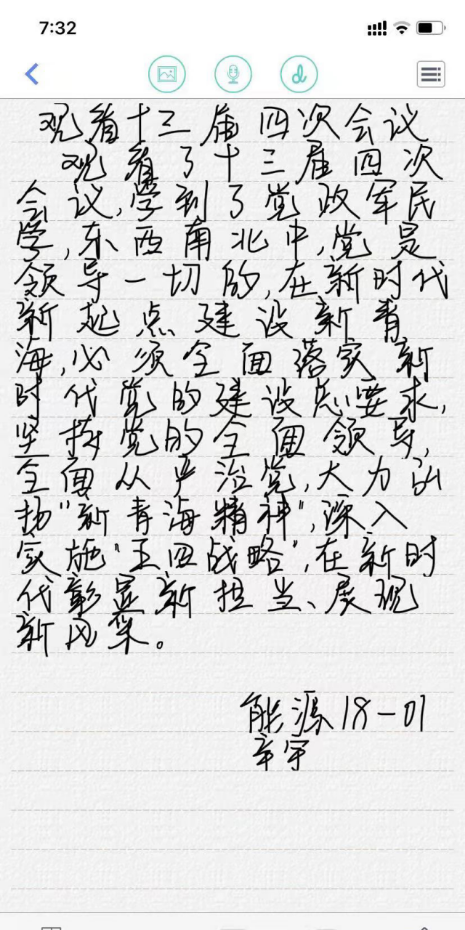 7:32
观看十三届四次会议
观看了十三届四次
会议,学到了党政军民
学,东西南北中,党是
领导一切的,在新时代
新起点建设新青
海,必须全面落实新
时代党的建设总要求,
坚持党的全面领导,
全面从严治党,大力弘
扬"新青海精神",深入
实施"五四战略",在新时
代彰显新担当、展现
新风采。
能源18-01
辛宇